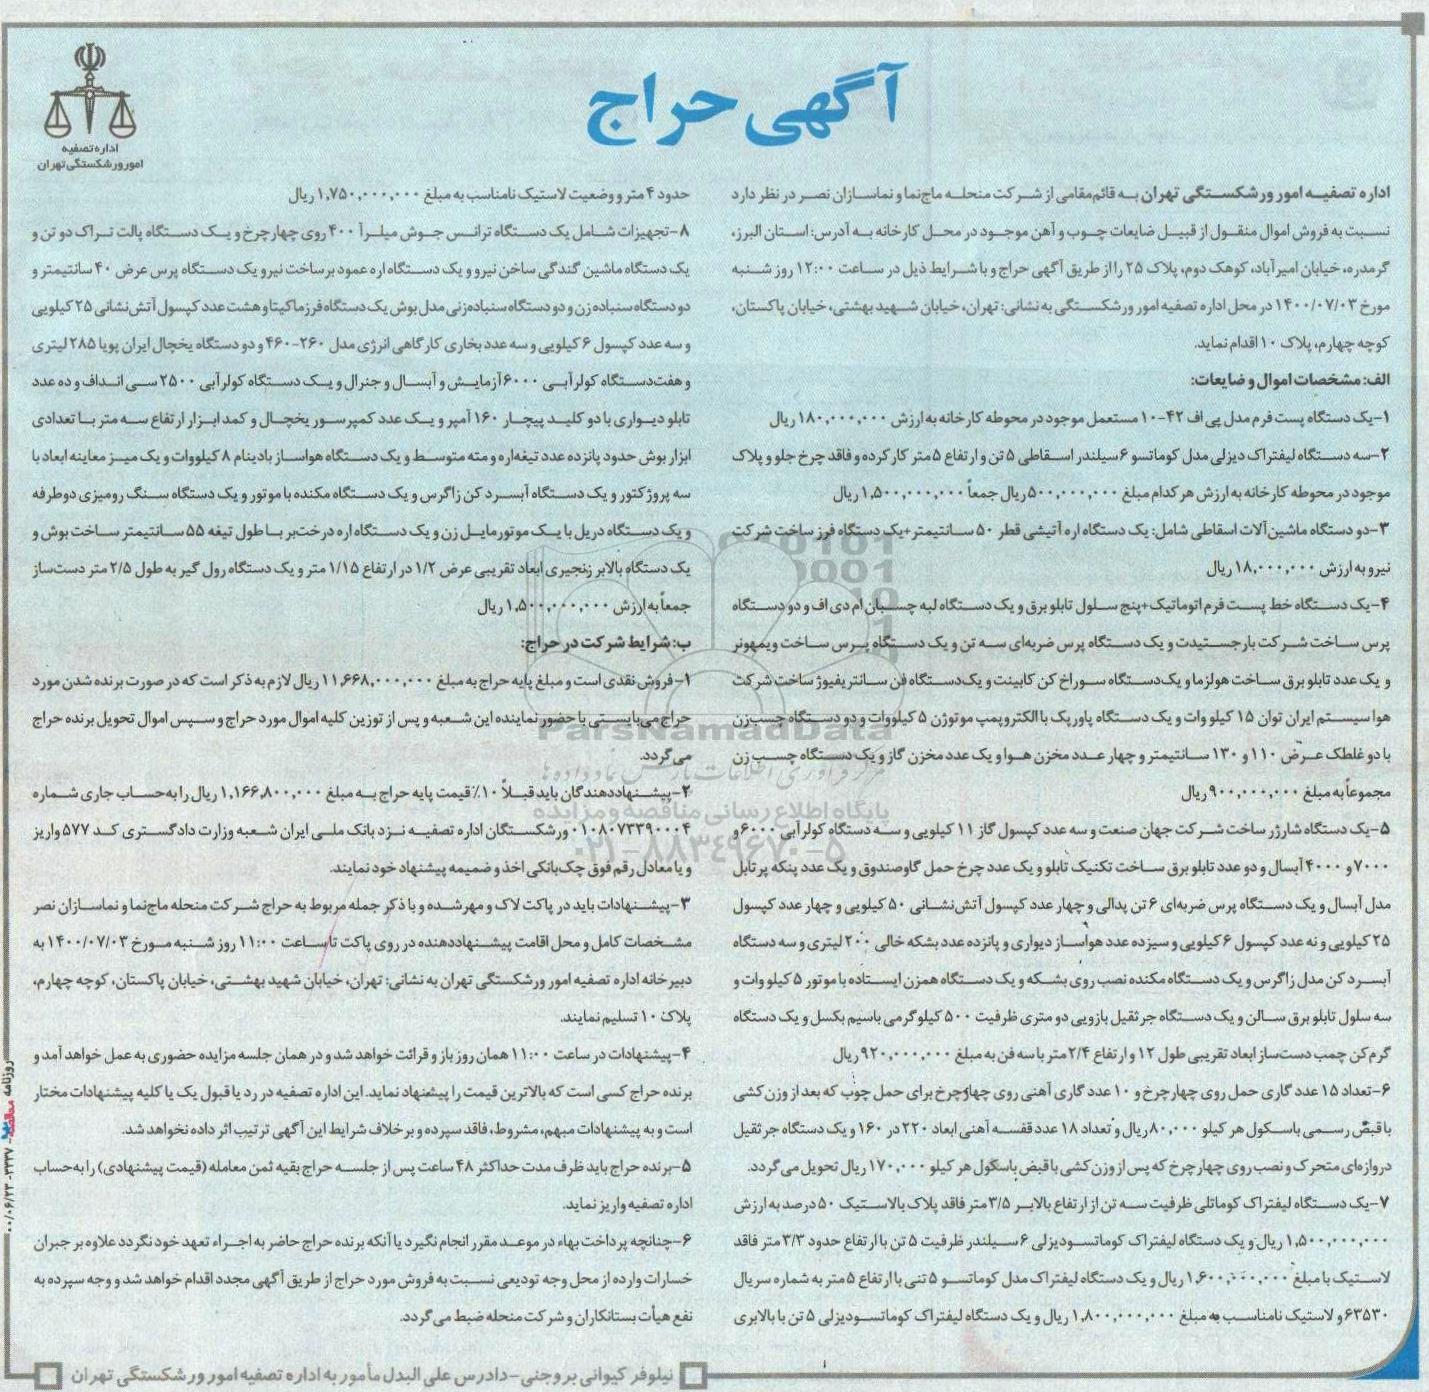 آگهی حراج
اداره تصفیه
امور ورشکستگی تهران
اداره تصفیه امور ورشکستگی تهران به قائم‌مقامی از شرکت منحله ماج‌نما و نماسازان نصر در نظر دارد
نسبت به فروش اموال منقول از قبیل ضایعات چوب و آهن موجود در محل کارخانه به آدرس: استان البرز،
گرمدره، خیابان امیرآباد، کوهک دوم، پلاک ۲۵ را از طریق آگهی حراج و با شرایط ذیل در ساعت ۱۲:۰۰ روز شنبه
مورخ ۱۴۰۰/۰۷/۰۳ در محل اداره تصفیه امور ورشکستگی به نشانی: تهران، خیابان شهید بهشتی، خیابان پاکستان،
کوچه چهارم، پلاک ۱۰ اقدام نماید.
الف: مشخصات اموال و ضایعات:
۱-یک دستگاه پست فرم مدل پی اف ۴۲-۱۰ مستعمل موجود در محوطه کارخانه به ارزش ۱۸۰,۰۰۰,۰۰۰ ریال
۲-سه دستگاه لیفتراک دیزلی مدل کوماتسو ۶ سیلندر اسقاطی ۵ تن و ارتفاع ۵ متر کارکرده و فاقد چرخ جلو و پلاک
موجود در محوطه کارخانه به ارزش هر کدام مبلغ ۵۰۰,۰۰۰,۰۰۰ ریال جمعاً ۱,۵۰۰,۰۰۰,۰۰۰ ریال
۳-دو دستگاه ماشین‌آلات اسقاطی شامل: یک دستگاه اره آتیشی قطر ۵۰ سانتیمتر+یک دستگاه فرز ساخت شرکت
نیرو به ارزش ۱۸,۰۰۰,۰۰۰ ریال
۴-یک دستگاه خط پست فرم اتوماتیک+پنج سلول تابلو برق و یک دستگاه لبه چسبان ام دی اف و دو دستگاه
پرس ساخت شرکت بارجستیدت و یک دستگاه پرس ضربه‌ای سه تن و یک دستگاه پرس ساخت ویمهونر
و یک عدد تابلو برق ساخت هولزما و یک‌دستگاه سوراخ کن کابینت و یک‌دستگاه فن سانتریفیوژ ساخت شرکت
هوا سیستم ایران توان ۱۵ کیلو وات و یک دستگاه پاورپک با الکتروپمپ موتوژن ۵ کیلووات و دو دستگاه چسب‌زن
با دو غلطک عرض ۱۱۰ و ۱۳۰ سانتیمتر و چهار عدد مخزن هوا و یک عدد مخزن گاز و یک دستگاه چسب زن
مجموعاً به مبلغ ۹۰۰,۰۰۰,۰۰۰ ریال
۵-یک دستگاه شارژر ساخت شرکت جهان صنعت و سه عدد کپسول گاز ۱۱ کیلویی و سه دستگاه کولر آبی ۶۰۰۰ و
۷۰۰۰ و ۴۰۰۰ آبسال و دو عدد تابلو برق ساخت تکنیک تابلو و یک عدد چرخ حمل گاوصندوق و یک عدد پنکه پرتابل
مدل آبسال و یک دستگاه پرس ضربه‌ای ۶ تن پدالی و چهار عدد کپسول آتش‌نشانی ۵۰ کیلویی و چهار عدد کپسول
۲۵ کیلویی و نه عدد کپسول ۶ کیلویی و سیزده عدد هواساز دیواری و پانزده عدد بشکه خالی ۲۰۰ لیتری و سه دستگاه
آبسرد کن مدل زاگرس و یک دستگاه مکنده نصب روی بشکه و یک دستگاه همزن ایستاده با موتور ۵ کیلو وات و
سه سلول تابلو برق سالن و یک دستگاه جرثقیل بازویی دو متری ظرفیت ۵۰۰ کیلوگرمی باسیم بکسل و یک دستگاه
گرم‌کن چمب دست‌ساز ابعاد تقریبی طول ۱۲ و ارتفاع ۲/۴ متر با سه فن به مبلغ ۹۲۰,۰۰۰,۰۰۰ ریال
۶-تعداد ۱۵ عدد گاری حمل روی چهارچرخ و ۱۰ عدد گاری آهنی روی چهارچرخ برای حمل چوب که بعد از وزن کشی
با قبض رسمی باسکول هر کیلو ۸۰,۰۰۰ ریال و تعداد ۱۸ عدد قفسه آهنی ابعاد ۲۲۰ در ۱۶۰ و یک دستگاه جرثقیل
دروازه‌ای متحرک و نصب روی چهارچرخ که پس از وزن کشی با قبض باسکول هر کیلو ۱۷۰,۰۰۰ ریال تحویل می‌گردد.
۷-یک دستگاه لیفتراک کوماتلی ظرفیت سه تن از ارتفاع بالابر ۳/۵ متر فاقد پلاک بالاستیک ۵۰ درصد به ارزش
۱,۵۰۰,۰۰۰,۰۰۰ ریال و یک دستگاه لیفتراک کوماتسو دیزلی ۶ سیلندر ظرفیت ۵ تن با ارتفاع حدود ۳/۳ متر فاقد
لاستیک با مبلغ ۱,۶۰۰,۰۰۰,۰۰۰ ریال و یک دستگاه لیفتراک مدل کوماتسو ۵ تنی با ارتفاع ۵ متر به شماره سریال
۶۳۵۳۰ و لاستیک نامناسب به مبلغ ۱,۸۰۰,۰۰۰,۰۰۰ ریال و یک دستگاه لیفتراک کوماتسو دیزلی ۵ تن با بالابری
حدود ۴ متر و وضعیت لاستیک نامناسب به مبلغ ۱,۷۵۰,۰۰۰,۰۰۰ ریال
۸-تجهیزات شامل یک دستگاه ترانس جوش میلرآ ۴۰۰ روی چهارچرخ و یک دستگاه پالت تراک دو تن و
یک دستگاه ماشین گندگی ساخن نیرو و یک دستگاه اره عمود بر ساخت نیرو یک دستگاه پرس عرض ۴۰ سانتیمتر و
دو دستگاه سنباده زن و دو دستگاه سنباده‌زنی مدل بوش یک دستگاه فرز ماکیتا و هشت عدد کپسول آتش‌نشانی ۲۵ کیلویی
و سه عدد کپسول ۶ کیلویی و سه عدد بخاری کارگاهی انرژی مدل ۲۶۰-۴۶۰ و دو دستگاه یخچال ایران پویا ۲۸۵ لیتری
و هفت‌دستگاه کولر آبی ۶۰۰۰ آزمایش و آبسال و جنرال و یک دستگاه کولر آبی ۲۵۰۰ سی انداف و ده عدد
تابلو دیواری با دو کلید پیچار ۱۶۰ آمپر و یک عدد کمپرسور یخچال و کمد ابزار ارتفاع سه متر با تعدادی
ابزار بوش حدود پانزده عدد تیغه‌اره و مته متوسط و یک دستگاه هواساز بادینام ۸ کیلووات و یک میز معاینه ابعاد با
سه پروژکتور و یک دستگاه آبسرد کن زاگرس و یک دستگاه مکنده با موتور و یک دستگاه سنگ رومیزی دوطرفه
و یک دستگاه دریل با یک موتور مایل زن و یک دستگاه اره درخت‌بر با طول تیغه ۵۵ سانتیمتر ساخت بوش و
یک دستگاه بالابر زنجیری ابعاد تقریبی عرض ۱/۲ در ارتفاع ۱/۱۵ متر و یک دستگاه رول گیر به طول ۲/۵ متر دست‌ساز
جمعاً به ارزش ۱,۵۰۰,۰۰۰,۰۰۰ ریال
ب: شرایط شرکت در حراج:
۱-فروش نقدی است و مبلغ پایه حراج به مبلغ ۱۱,۶۶۸,۰۰۰,۰۰۰ ریال لازم به ذکر است که در صورت برنده شدن مورد
حراج می‌بایستی با حضور نماینده این شعبه و پس از توزین کلیه اموال مورد حراج و سپس اموال تحویل برنده حراج
می‌گردد.
۲-پیشنهاددهندگان باید قبلاً ۱۰٪ قیمت پایه حراج به مبلغ ۱,۱۶۶,۸۰۰,۰۰۰ ریال را به‌حساب جاری شماره
۰۱۰۸۰۷۳۳۹۰۰۰۴ ورشکستگان اداره تصفیه نزد بانک ملی ایران شعبه وزارت دادگستری کد ۵۷۷ واریز
و یا معادل رقم فوق چک‌بانکی اخذ و ضمیمه پیشنهاد خود نمایند.
۳-پیشنهادات باید در پاکت لاک و مهر شده و با ذکر جمله مربوط به حراج شرکت منحله ماج‌نما و نماسازان نصر
مشخصات کامل و محل اقامت پیشنهاددهنده در روی پاکت تا ساعت ۱۱:۰۰ روز شنبه مورخ ۱۴۰۰/۰۷/۰۳ به
دبیرخانه اداره تصفیه امور ورشکستگی تهران به نشانی: تهران، خیابان شهید بهشتی، خیابان پاکستان، کوچه چهارم،
پلاک ۱۰ تسلیم نمایند.
۴-پیشنهادات در ساعت ۱۱:۰۰ همان روز باز و قرائت خواهد شد و در همان جلسه مزایده حضوری به عمل خواهد آمد و
برنده حراج کسی است که بالاترین قیمت را پیشنهاد نماید. این اداره تصفیه در رد یا قبول یک یا کلیه پیشنهادات مختار
است و به پیشنهادات مبهم، مشروط، فاقد سپرده و برخلاف شرایط این آگهی ترتیب اثر داده نخواهد شد.
۵-برنده حراج باید ظرف مدت حداکثر ۴۸ ساعت پس از جلسه حراج بقیه ثمن معامله (قیمت پیشنهادی) را به‌حساب
اداره تصفیه واریز نماید.
۶-چنانچه پرداخت بهاء در موعد مقرر انجام نگیرد یا آنکه برنده حراج حاضر به اجراء تعهد خود نگردد علاوه بر جبران
خسارات وارده از محل وجه تودیعی نسبت به فروش مورد حراج از طریق آگهی مجدد اقدام خواهد شد و وجه سپرده به
نفع هیأت بستانکاران و شرکت منحله ضبط می‌گردد.
نیلوفر کیوانی بروجنی-دادرس علی البدل مأمور به اداره تصفیه امور ورشکستگی تهران
ParsNamadData
مرکز فرآوری اطلاعات پارس نماد داده‌ها
پایگاه اطلاع رسانی مناقصه و مزایده
۰۲۱-۸۸۳۴۹۶۷۰-۵
روزنامه
۳۲۳۷-۰۰/۰۶/۲۳